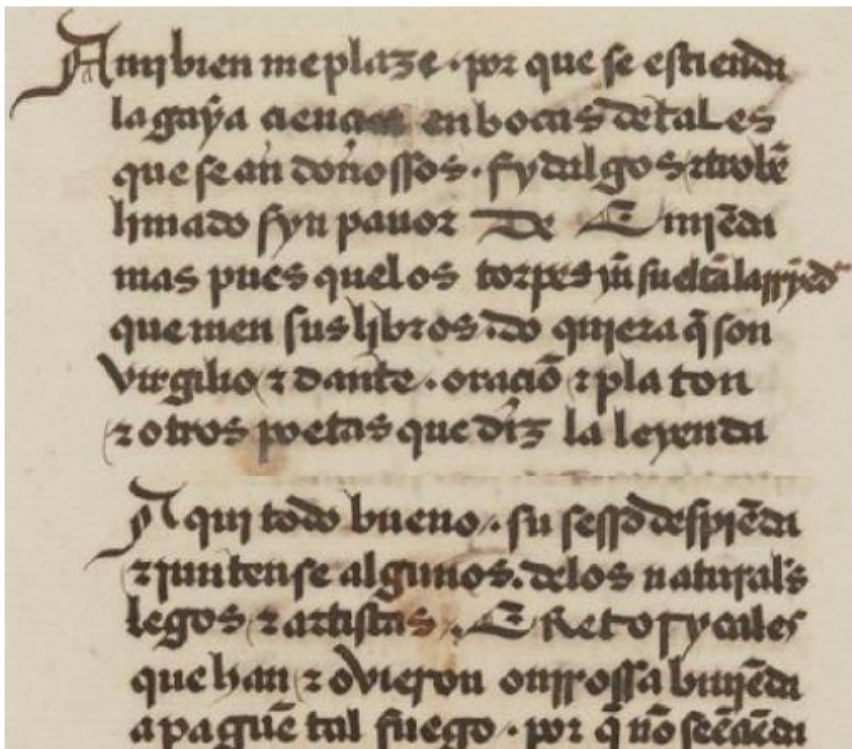 A mj bien me plaze . por que se estienda
la gaya ciencia en bocas de tales
que sean donossos . fydalgos τ trobē
limado syn pauor De Emjēda
mas pues quelos torpes yā sueltā la rryēd
quemen sus libros . do quiera q̄ son
virgilio τ dante . oraciō τ platon
τ otros poetas que diz la leyenda
A qui todo bueno . su sesso despiēda
τ juntense algunos . delos naturals
legos τ artistas . E Retorycales
que han τ ovieron onrrossa biujēda
apaguē tal fuego . por q̄ nō se ēciēda